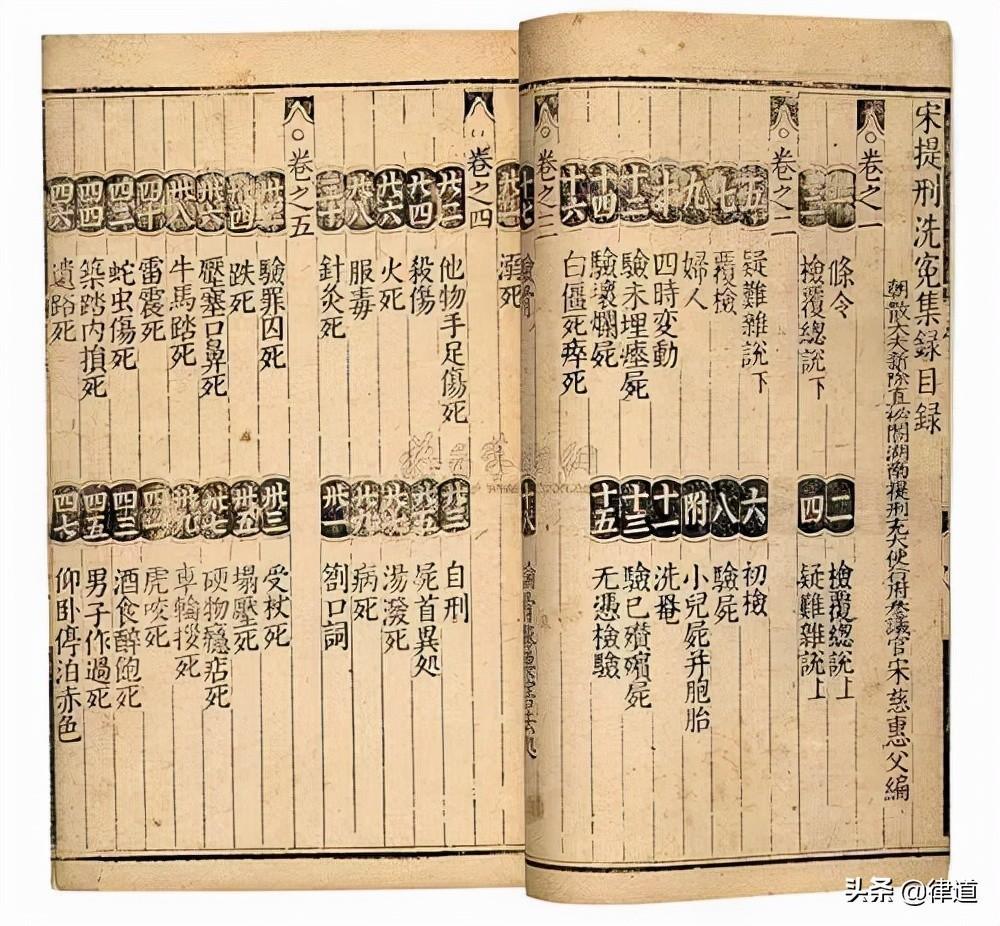 宋提刑洗冤集録目録
朝散大夫新除直秘閣湖南提刑充大使行府參議官宋慈惠父編
卷之一
一 條令 二 檢覆總説上
三 檢覆總説下 四 疑難雜説上
卷之二
五 疑難雜説下 六 初檢
七 覆檢 八 驗屍
九 婦人 附 小兒屍并胞胎
十 四時变動 十一 洗罨
十二 驗未埋瘞屍 十三 驗已殯屍
十四 驗壞爛屍 十五 无憑檢驗
十六 白僵死瘁死
卷之三
十七 驗骨 十八
溺死
卷之四
廿二 他物手足傷死 廿三 自刑
廿四 殺傷 廿五 屍首異処
廿六 火死 廿七 湯潑死
廿八 服毒 廿九 病死
三十 針灸死 卅一 劄口詞
卷之五
卅二 驗罪囚死 卅三 受杖死
卅四 跌死 卅五 塌壓死
卅六 壓塞口鼻死 卅七 硬物癮痁死
卅八 牛馬踏死 卅九 車輪拶死
四十 雷震死 四一 虎咬死
四二 蛇虫傷死 四三 酒食醉飽死
四四 築踏内損死 四五 男子作過死
四六 遺路死 四七 仰卧停泊赤色
头条 @律道